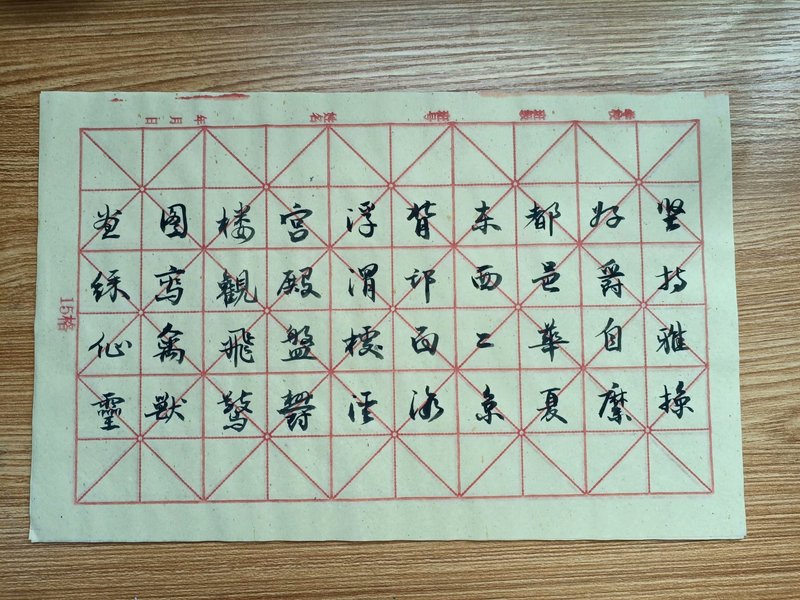 坚持雅操
好爵自縻
都邑華夏
东西二京
背邙面洛
浮渭據泾
宫殿盤欝
楼觀飛驚
图寫禽獸
畫綵仙靈
姓名
年月日
15格